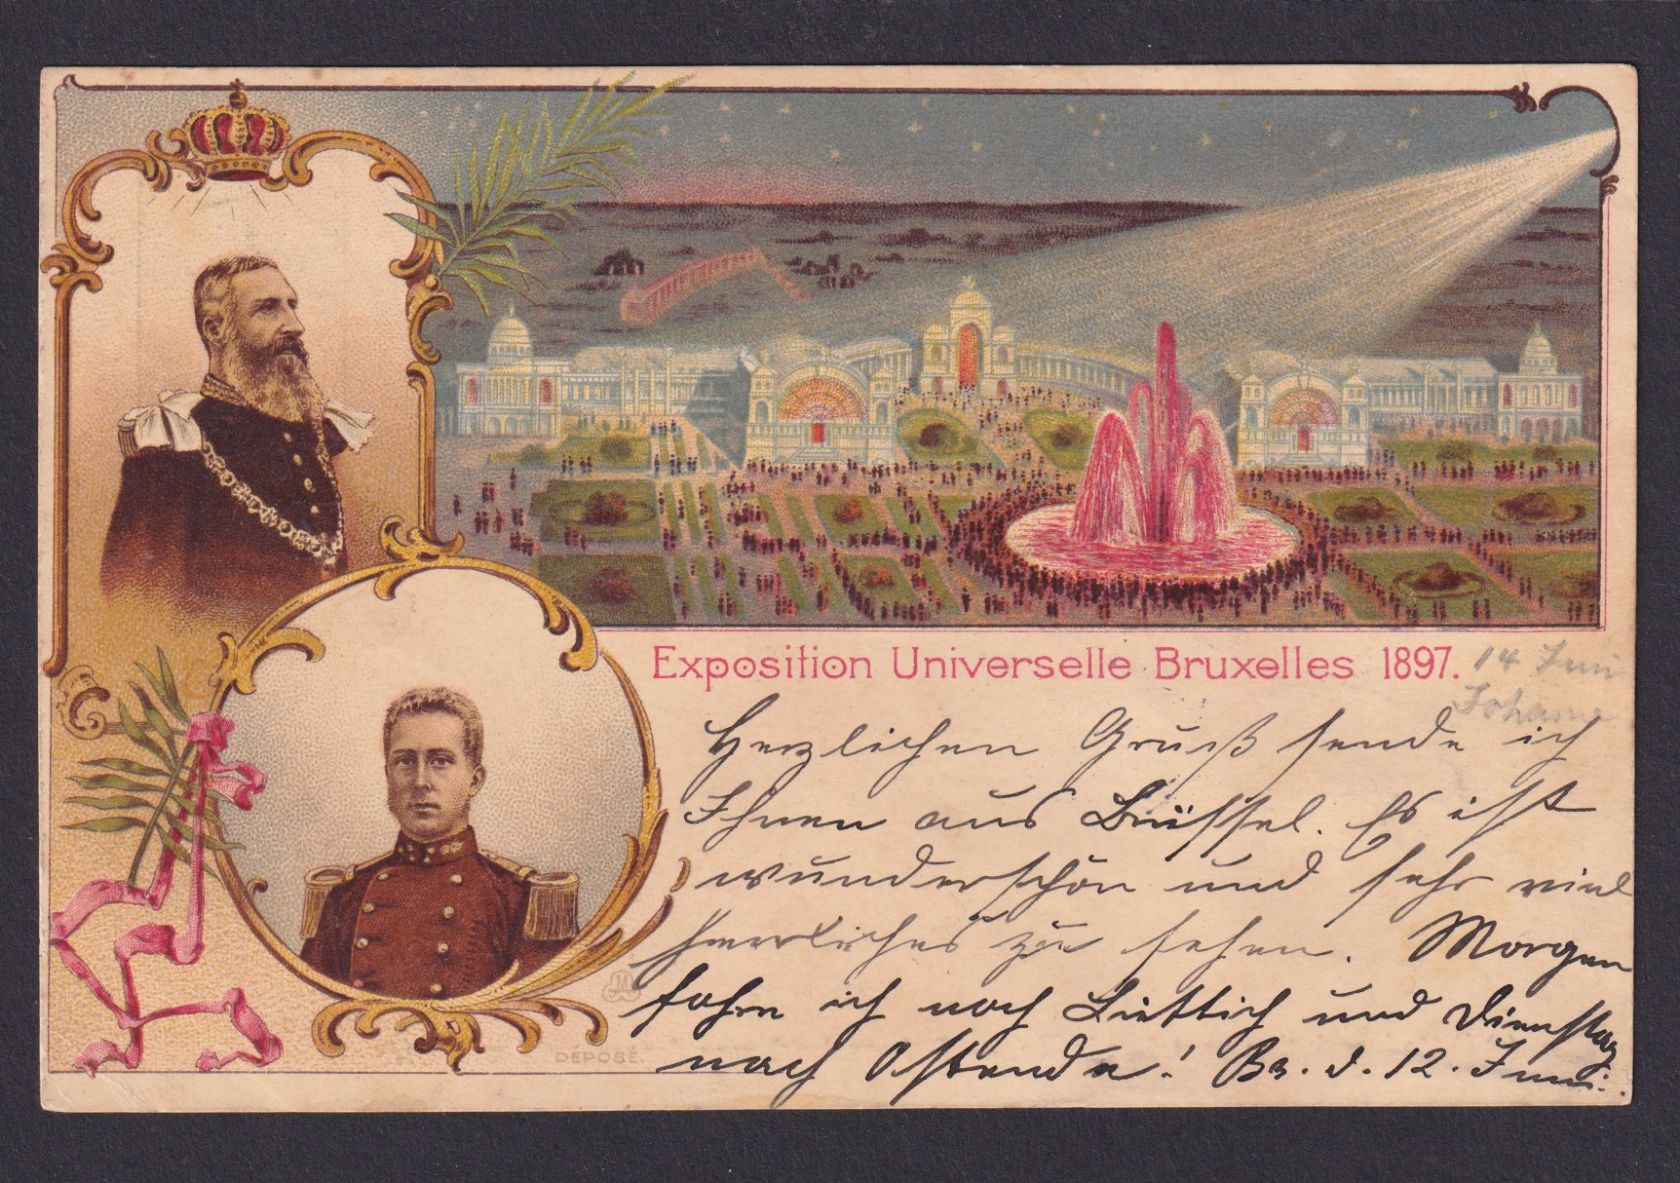 Exposition Universelle Bruxelles 1897.
14 Juni
Johanna
Herzlichen Gruß sende ich
Ihnen aus Brüssel. Es ist
wunderschön und sehr viel
herrliches zu sehen. Morgen
fahre ich nach Lüttich und Dienstag
nach Ostende! Br. d. 12. Juni.
DÉPOSÉ.